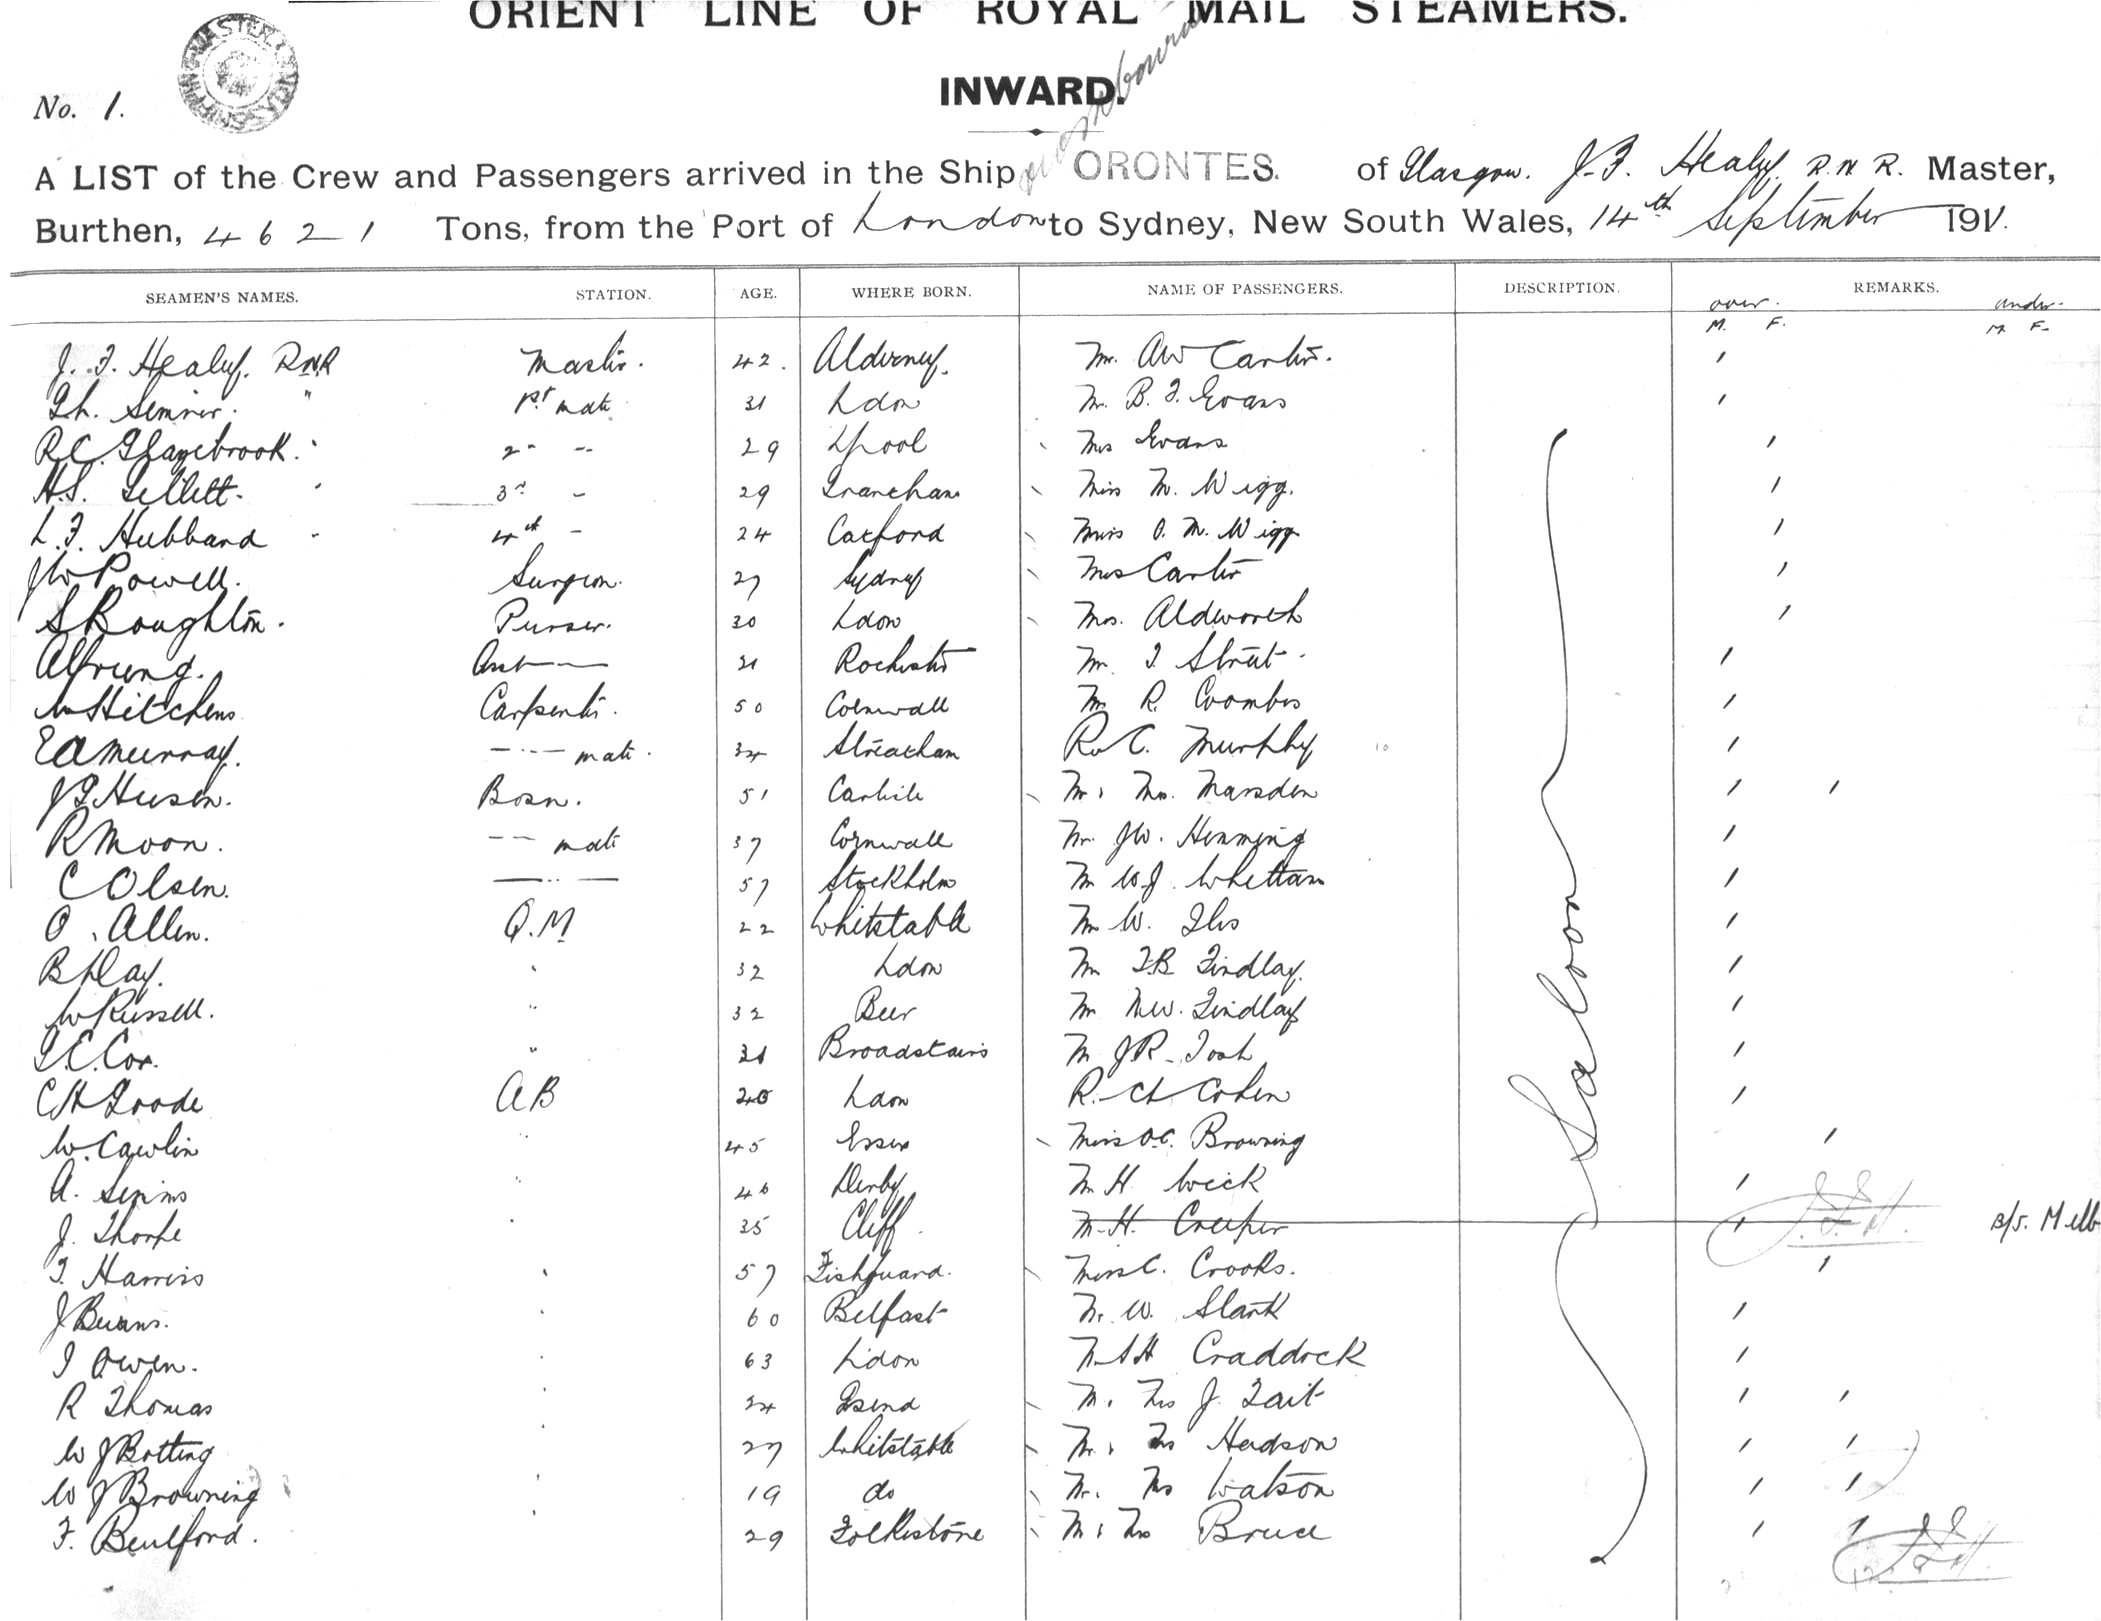 ORIENT LINE OF ROYAL MAIL STEAMERS.
INWARD.
No. 1.
A LIST of the Crew and Passengers arrived in the Ship ORONTES. of Glasgow. J.F. Healey R.N.R. Master,
Burthen, 4621 Tons, from the Port of London to Sydney, New South Wales, 14th September 1911.
SEAMEN'S NAMES. STATION. AGE. WHERE BORN. NAME OF PASSENGERS. DESCRIPTION. REMARKS.
over. under.
M. F. M F.
J. F. Healey. RNR Master. 42. Alderney. Mr. AW Carter.
1st mate 31 Ldon Mr. B. F. Evans
R.C. Glazebrook. " 2nd -- 29 Lpool Mrs Evans
H.S. 3rd - 29 Miss M. Wigg.
L. F. Hubband 4th - 24 Catford Miss O. M. Wigg
JW Powell. Surgeon. 27 Sydney Mrs Carter
S Roughton. Purser. 30 Ldon Mrs. Aldworth
Asst 21 Rochester Mr F Street.
W Hitchens Carpenter. 50 Cornwall Mr R. Coombes
EA Murray. mate. 34 Streatham R. C. Murphy
Bosn. 51 Carlisle Mr. Mrs. Marsden
R Moon. -- mate 37 Cornwall Mr. JW. Hemming
C Olsen. 57 Stockholm Mr W.J. Whettam
O. Allen. Q.M 22 Whitstable Mr W. Iles
B H Day. " 32 Ldon Mr F.B. Findlay.
W Russell. " 32 Beer Mr N.W. Findlay
T.E. Cox. " 31 Broadstairs Mr J.R. Tosh
CH Goode AB 20 Ldon R. Ch Cohen
W. Cawlin " 45 Essex Miss O.C. Browning
A. Simms " 46 Derby Mr H. Wick
J. Thorpe " 35 Cliff Mr. H. Creeper B/S. Melb
T. Harriss " 57 Fishguard. Miss C. Crooks.
J Buians. " 60 Belfast Mr. W. Slark
J Owen. " 63 Ldon Craddock
R Thomas " 24 Gsend Mr. Mrs J. Tait
W J Botting " 27 Whitstable Mr. Mrs Hudson
W J Browning " 19 do Mr. Mrs Watson
F. Beulford. " 29 Folkestone Mr. Mrs Bruce
Saloon